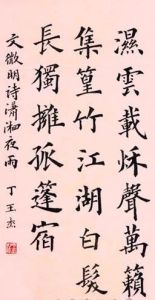 濕雲載秌聲萬籟
集篁竹江湖白髮
長獨擁孤蓬宿
文徵明詩瀟湘夜雨
丁王杰